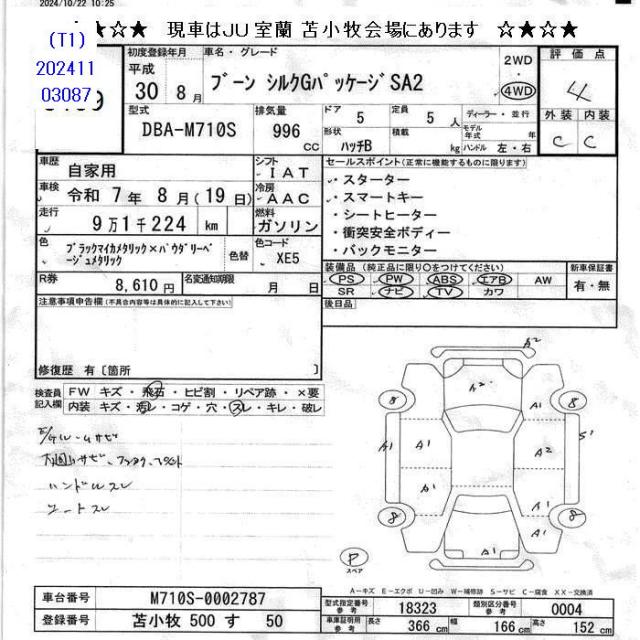 2024/10/22 10:25
☆★☆★ 現車はJU室蘭 苫小牧会場にあります ☆★☆★
(T1)
202411
03087
初度登録年月
平成
30年 8月
車名・グレード
ブーン シルクGパッケージSA2
2WD
・
4WD
評価点
4
外装 内装
C C
型式
DBA-M710S
排気量
996
CC
ドア 5
定員 5人
ディーラー・並行
形状 ハッチB
積載 kg
モデル年式 年
ハンドル 左・右
車歴
自家用
シフト
IAT
車検
令和 7年 8月(19日)
冷房
AAC
走行
9万1千224 km
燃料
ガソリン
色
ブラックマイカメタリック×パウダリーベージュメタリック
色替
色コード
XE5
R券
8,610円
名変通知期限
月 日
セールスポイント(正常に機能するものに限ります)
・スターター
・スマートキー
・シートヒーター
・衝突安全ボディー
・バックモニター
装備品 (純正品に限り○をつけてください)
PS・PW・ABS・エアB・AW
SR・ナビ・TV・カワ
新車保証書
有・無
後日品
注意事項申告欄(不具合内容等は具体的に記入して下さい)
修復歴 有〔箇所 〕
検査員記入欄
FW キズ・飛石・ヒビ割・リペア跡・×要
内装 キズ・汚レ・コゲ・穴・スレ・キレ・破レ
ハンドルスレ
シートスレ
A2
A2
A1
8
8
A1
A1
A2
S1
A1
A1
8
8
A1
A1
P
スペア
A-キズ E-エクボ U-凹み W-補修跡 S-サビ C-腐食 XX-交換済
車台番号
M710S-0002787
登録番号
苫小牧 500 す 50
型式指定番号 参考
18323
類別区分番号 参考
0004
車庫証明用 参考
長さ 366 cm
幅 166 cm
高さ 152 cm